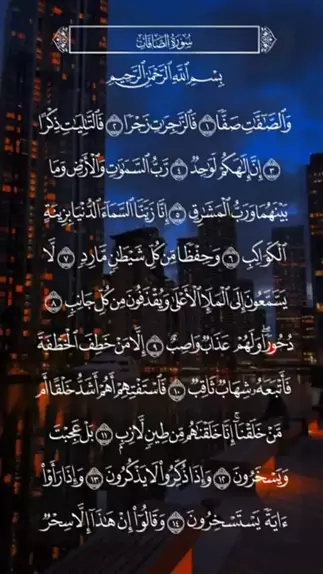 سُورَةُ الصَّافَّاتِ
بِسْمِ ٱللَّهِ ٱلرَّحْمَٰنِ ٱلرَّحِيمِ
وَٱلصَّٰٓفَّٰتِ صَفًّا ١ فَٱلزَّٰجِرَٰتِ زَجْرًا ٢ فَٱلتَّٰلِيَٰتِ ذِكْرًا
٣ إِنَّ إِلَٰهَكُمْ لَوَٰحِدٌ ٤ رَّبُّ ٱلسَّمَٰوَٰتِ وَٱلْأَرْضِ وَمَا
بَيْنَهُمَا وَرَبُّ ٱلْمَشَٰرِقِ ٥ إِنَّا زَيَّنَّا ٱلسَّمَآءَ ٱلدُّنْيَا بِزِينَةٍ
ٱلْكَوَاكِبِ ٦ وَحِفْظًا مِّن كُلِّ شَيْطَٰنٍ مَّارِدٍ ٧ لَّا
يَسَّمَّعُونَ إِلَى ٱلْمَلَإِ ٱلْأَعْلَىٰ وَيُقْذَفُونَ مِن كُلِّ جَانِبٍ ٨
دُحُورًا ۖ وَلَهُمْ عَذَابٌ وَاصِبٌ ٩ إِلَّا مَنْ خَطِفَ ٱلْخَطْفَةَ
فَأَتْبَعَهُۥ شِهَابٌ ثَاقِبٌ ١٠ فَٱسْتَفْتِهِمْ أَهُمْ أَشَدُّ خَلْقًا أَم
مَّنْ خَلَقْنَآ ۚ إِنَّا خَلَقْنَٰهُم مِّن طِينٍ لَّازِبٍۭ ١١ بَلْ عَجِبْتَ
وَيَسْخَرُونَ ١٢ وَإِذَا ذُكِّرُوا۟ لَا يَذْكُرُونَ ١٣ وَإِذَا رَأَوْا۟
ءَايَةً يَسْتَسْخِرُونَ ١٤ وَقَالُوٓا۟ إِنْ هَٰذَآ إِلَّا سِحْرٌ